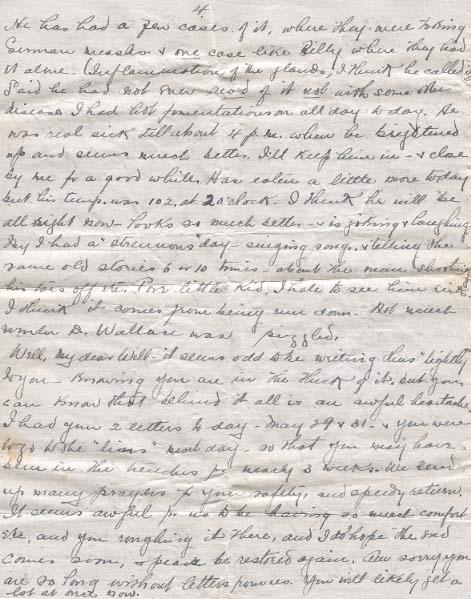 4
He has had a few cases of it, where they were taking
German measles & one case like Billy where they had
it alone. (Inflammation of the glands, I think he called it
Said he had not even read of it not with some other
disease. I had hot fomentations on all day to-day. He
was real sick till about 4 p.m. when he brightened
up and seems much better. I'll keep him in - & close
by me for a good while. Has eaten a little more to day
but his temp. was 102, at 2 o'clock. I think he will be
all right now - Looks so much better - & is joking & laughing
My I had a "strenuous" day - singing songs & telling the
same old stories 6 or 10 times - about the man shooting
his toes off etc. Poor little kid, I hate to see him sick
I think it comes from being run down. Not much
wonder Dr. Wallace was puzzled.
Well, my dear Will - it seems odd to be writing thus lightly
to you - knowing you are in the thick of it, but you
can know that behind it all is an awful heartache
I had your 2 letters to day - May 29 & 31 - & you were
to go to the "lines" next day - so that you may have
been in the trenches for nearly 3 weeks. We send
up many prayers for your safety, and speedy return.
It seems awful for us to be having so much comfort
etc, and you roughing it there, and I do hope the end
comes soon, & peace be restored again. Am sorry you
are so long without letters. You will likely get a
lot at once now.